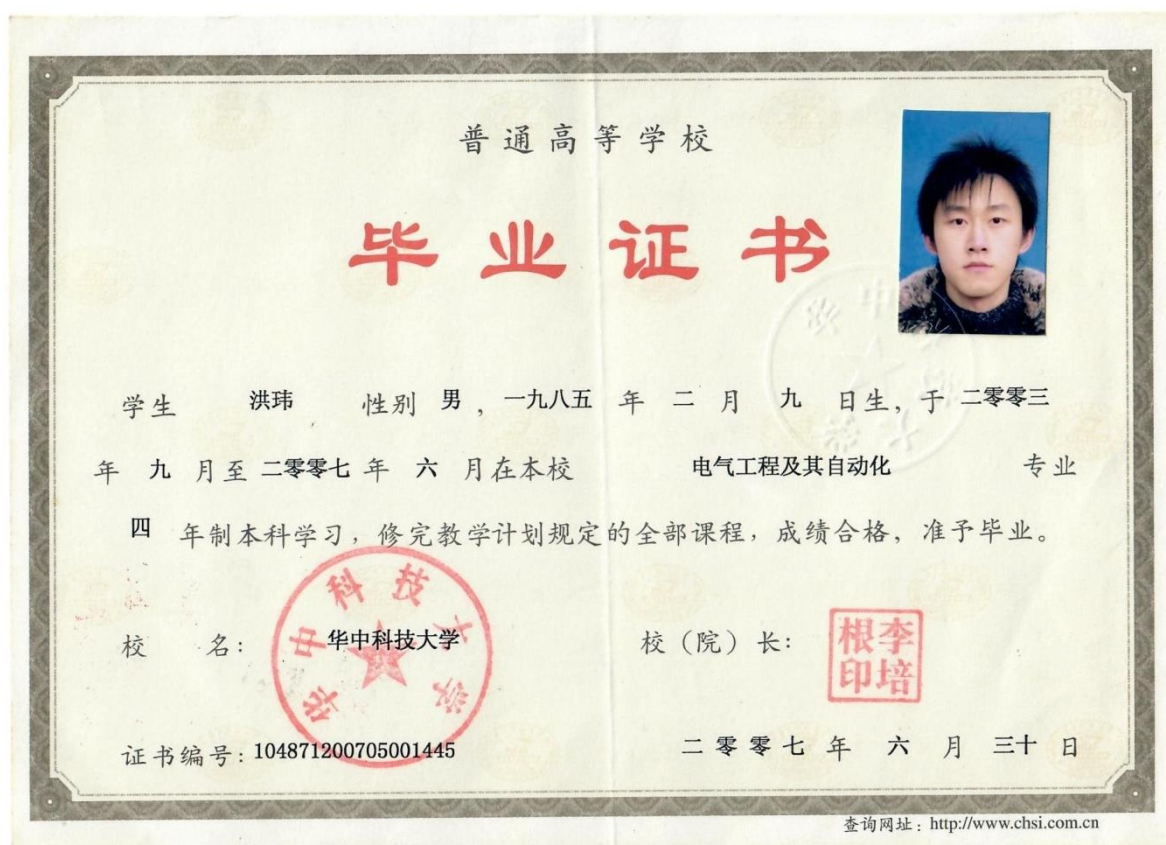 普通高等学校
毕业证书
学生 洪玮 性别 男 ，一九八五 年 二 月 九 日生，于 二零零三
年 九 月至 二零零七 年 六 月在本校 电气工程及其自动化 专业
四 年制本科学习，修完教学计划规定的全部课程，成绩合格，准予毕业。
华中科技大学
校 名：华中科技大学 校（院）长：
李培根印
证书编号：104871200705001445 二零零七年 六 月 三十 日
查询网址：http://www.chsi.com.cn